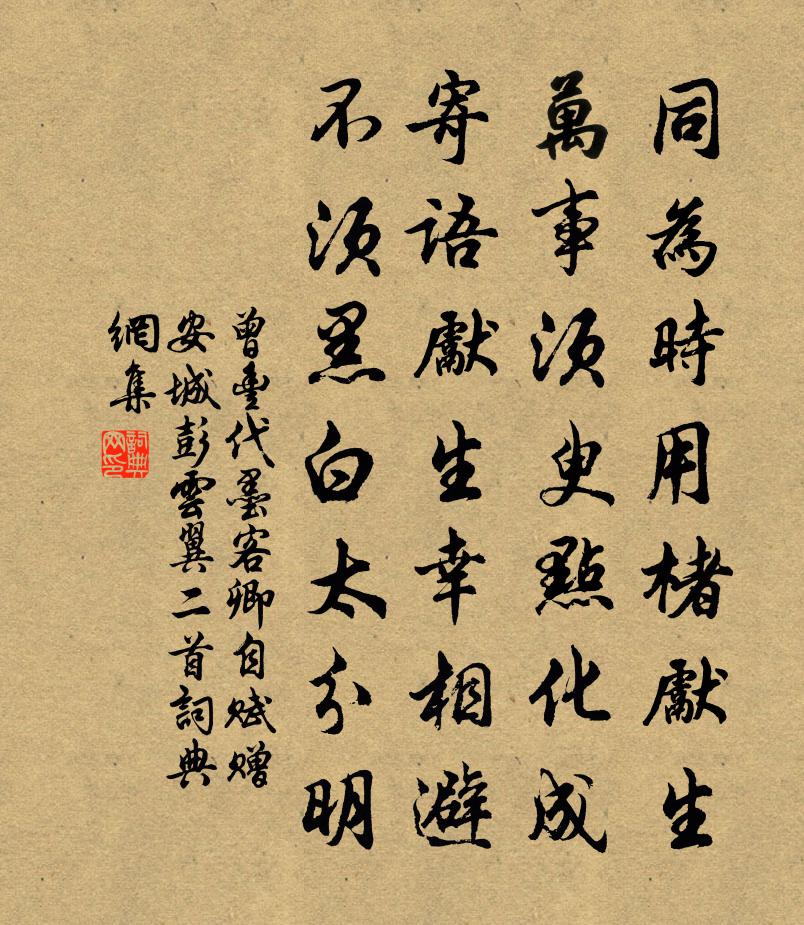 同為時用楮獻生
萬事須臾點化成
寄語獻生幸相避
不須黑白太分明
曾豐代墨客卿自賦贈
安城彭雲翼二首詞典
網集
詞典
网印